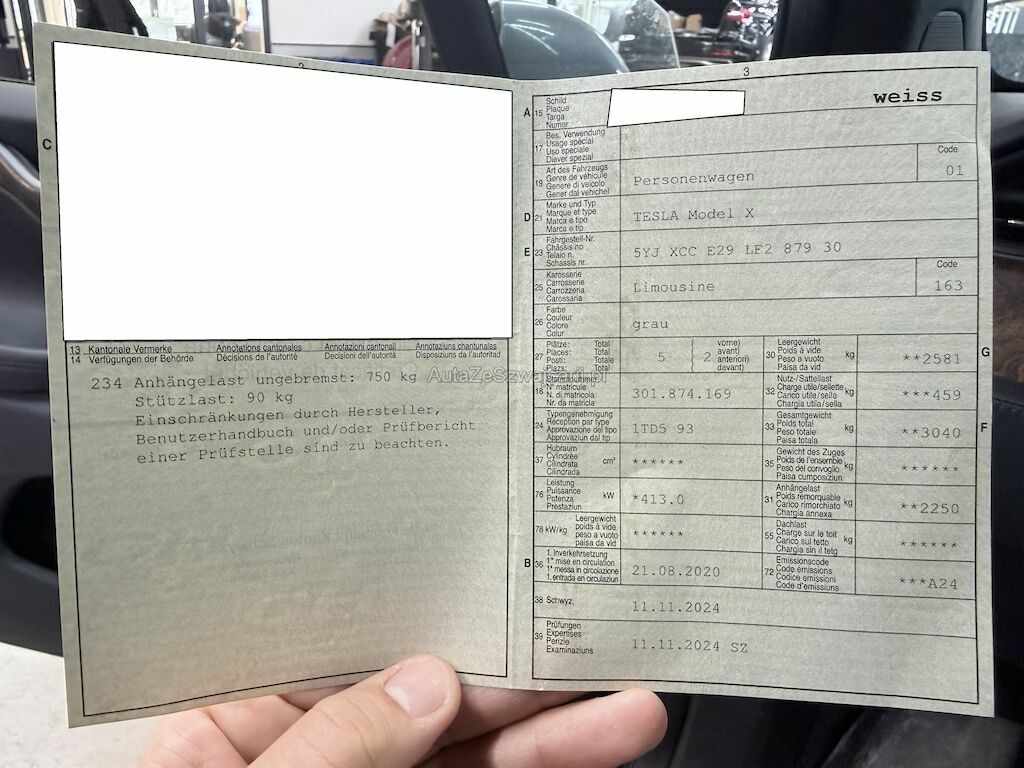 C
13 Kantonale Vermerke Annotations cantonales Annotazioni cantonali Annotaziuns chantunalas
14 Verfügungen der Behörde Décisions de l'autorité Decisioni dell'autorità Disposiziuns da l'autoritad
234 Anhängelast ungebremst: 750 kg
Stützlast: 90 kg
Einschränkungen durch Hersteller,
Benutzerhandbuch und/oder Prüfbericht
einer Prüfstelle sind zu beachten.
AutaZeSzwajcarii.pl
3
weiss
A 15 Schild
Plaque
Targa
Numer
17 Bes. Verwendung
Usage spécial
Uso speciale
Diever spezial
19 Art des Fahrzeugs
Genre de véhicule
Genere di veicolo
Gener dal vehichel
Personenwagen
Code
01
D 21 Marke und Typ
Marque et type
Marca e tipo
Marca e tip
TESLA Model X
E 23 Fahrgestell-Nr.
Châssis no
Telaio n.
Schassis nr.
5YJ XCC E29 LF2 879 30
25 Karosserie
Carrosserie
Carrozzeria
Carossaria
Limousine
Code
163
26 Farbe
Couleur
Colore
Colur
grau
27 Plätze: Total
Places: Total
Posti: Totale
Plazs: Total
5
2
vorne)
avant)
anteriori)
davant)
30 Leergewicht
Poids à vide
Peso a vuoto
Paisa da vid
kg
**2581
G
18 Stammnummer
N° matricule
N. di matricola
Nr. da matricla
301.874.169
32 Nutz-/Sattellast
Charge utile/sellette
Carico utile/sella
Chargia utila/sella
kg
***459
24 Typengenehmigung
Réception par type
Approvazione del tipo
Approvaziun dal tip
1TD5 93
33 Gesamtgewicht
Poids total
Peso totale
Paisa totala
kg
**3040
F
37 Hubraum
Cylindrée
Cilindrata
Cilindrada
cm³
******
35 Gewicht des Zuges
Poids de l'ensemble
Peso del convoglio
Paisa cumposiziun
kg
******
76 Leistung
Puissance
Potenza
Prestaziun
kW
*413.0
31 Anhängelast
Poids remorquable
Carico rimorchiato
Chargia annexa
kg
**2250
78 kW/kg Leergewicht
poids à vide
peso a vuoto
paisa da vid
******
55 Dachlast
Charge sur le toit
Carico sul tetto
Chargia sin il tetg
kg
******
B 36 1. Inverkehrsetzung
1re mise en circulation
1a messa in circolazione
1. entrada en circulaziun
21.08.2020
72 Emissionscode
Code émissions
Codice emissioni
Code d'emissiuns
***A24
38 Schwyz,
11.11.2024
39 Prüfungen
Expertises
Perizie
Examinaziuns
11.11.2024 SZ